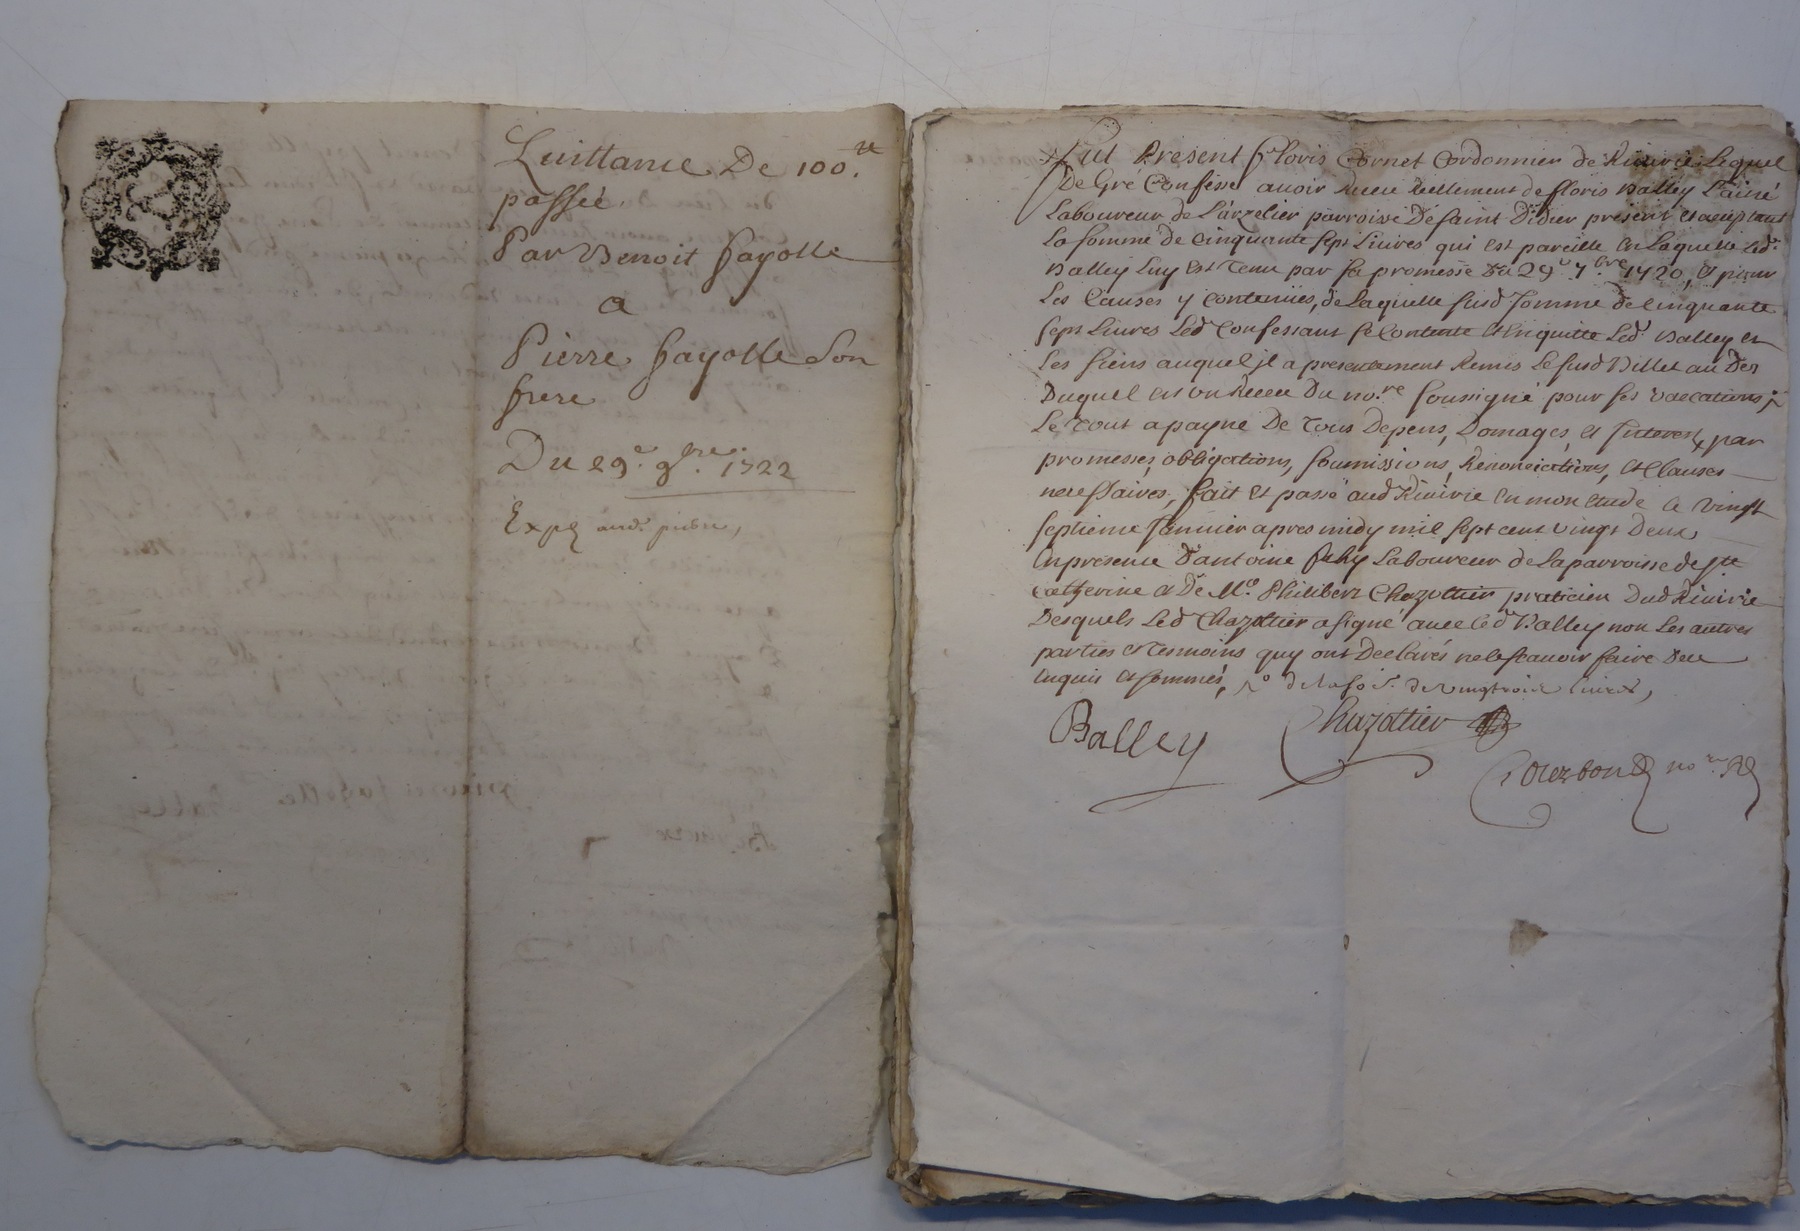 Quittance De 100.tt
passée.
Par Benoit fayolle
a
Pierre fayolle Son
frere
Du 29e. 9bre. 1722
Expé aud. pierre,
Fut Present Floris Cornet Cordonnier de Riuirie Lequel
De Gré Confesse auoir Receu Reellement de floris Balley L'ainé
Laboureur de L'arzelier parroise De saint Didier present et aceptant
La somme de cinquante sept Liures qui est pareille en Laquelle led.
Balley Luy est Tenu par sa promesse du 29e 7bre 1720, et pour
Les Causes y contenües, de Laquelle susd somme de Cinquante
sept Liures Led Confessant se Contente et en quitte Led. Balley et
Les siens auquel jl a presentement Remis Le susd Billet au Des
Duquel est un Receu Du no.re soussigné pour ses vaccations,
Le Tout a payne De Tous Depens, Domages, et Interest, par
promesses, obligations, soumissions, Renonciations, et Clauses
necessaires, fait et passé aud Riuirie en mon etude le vingt
septieme Januier apres midy mil sept cent vingt Deux,
En presence D'antoine Laboureur de La parroisse de Ste
catherine et De Me. Philibert Chazottier praticien Dud Riuirie
Desquels Led Chazottier a signé auec led Balley non Les autres
parties et Temoins quy ont Declarés ne le scauoir faire De ce
enquis et sommés, de vingt trois liures,
Balley
Chazottier
Courbon no.re R